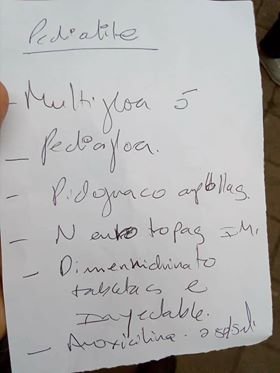 Pedialite
- Multiflora 5
- Pediaflora.
- ampollas.
- Neurotopas I.M.
- Dimenhidrinato
tabletas e
inyectable.
- Amoxicilina